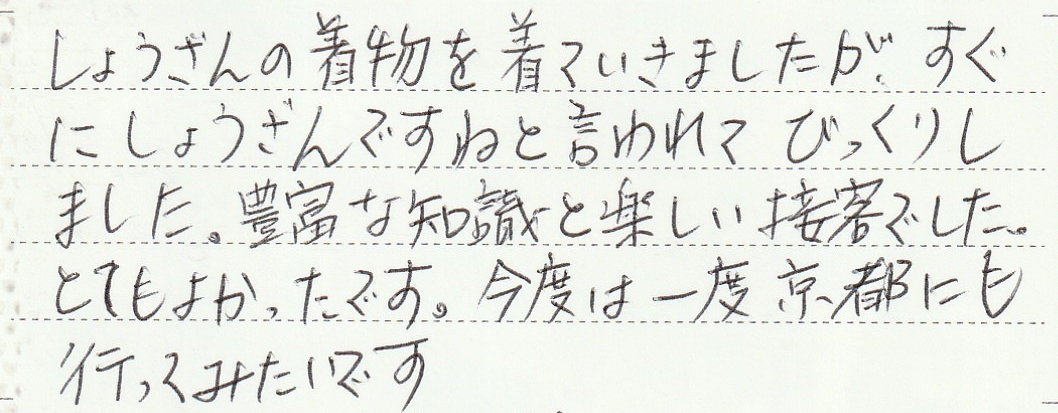 しょうざんの着物を着ていきましたが、すぐ
にしょうざんですねと言われて びっくりし
ました。豊富な知識と楽しい接客でした。
とてもよかったです。今度は一度京都にも
行ってみたいです